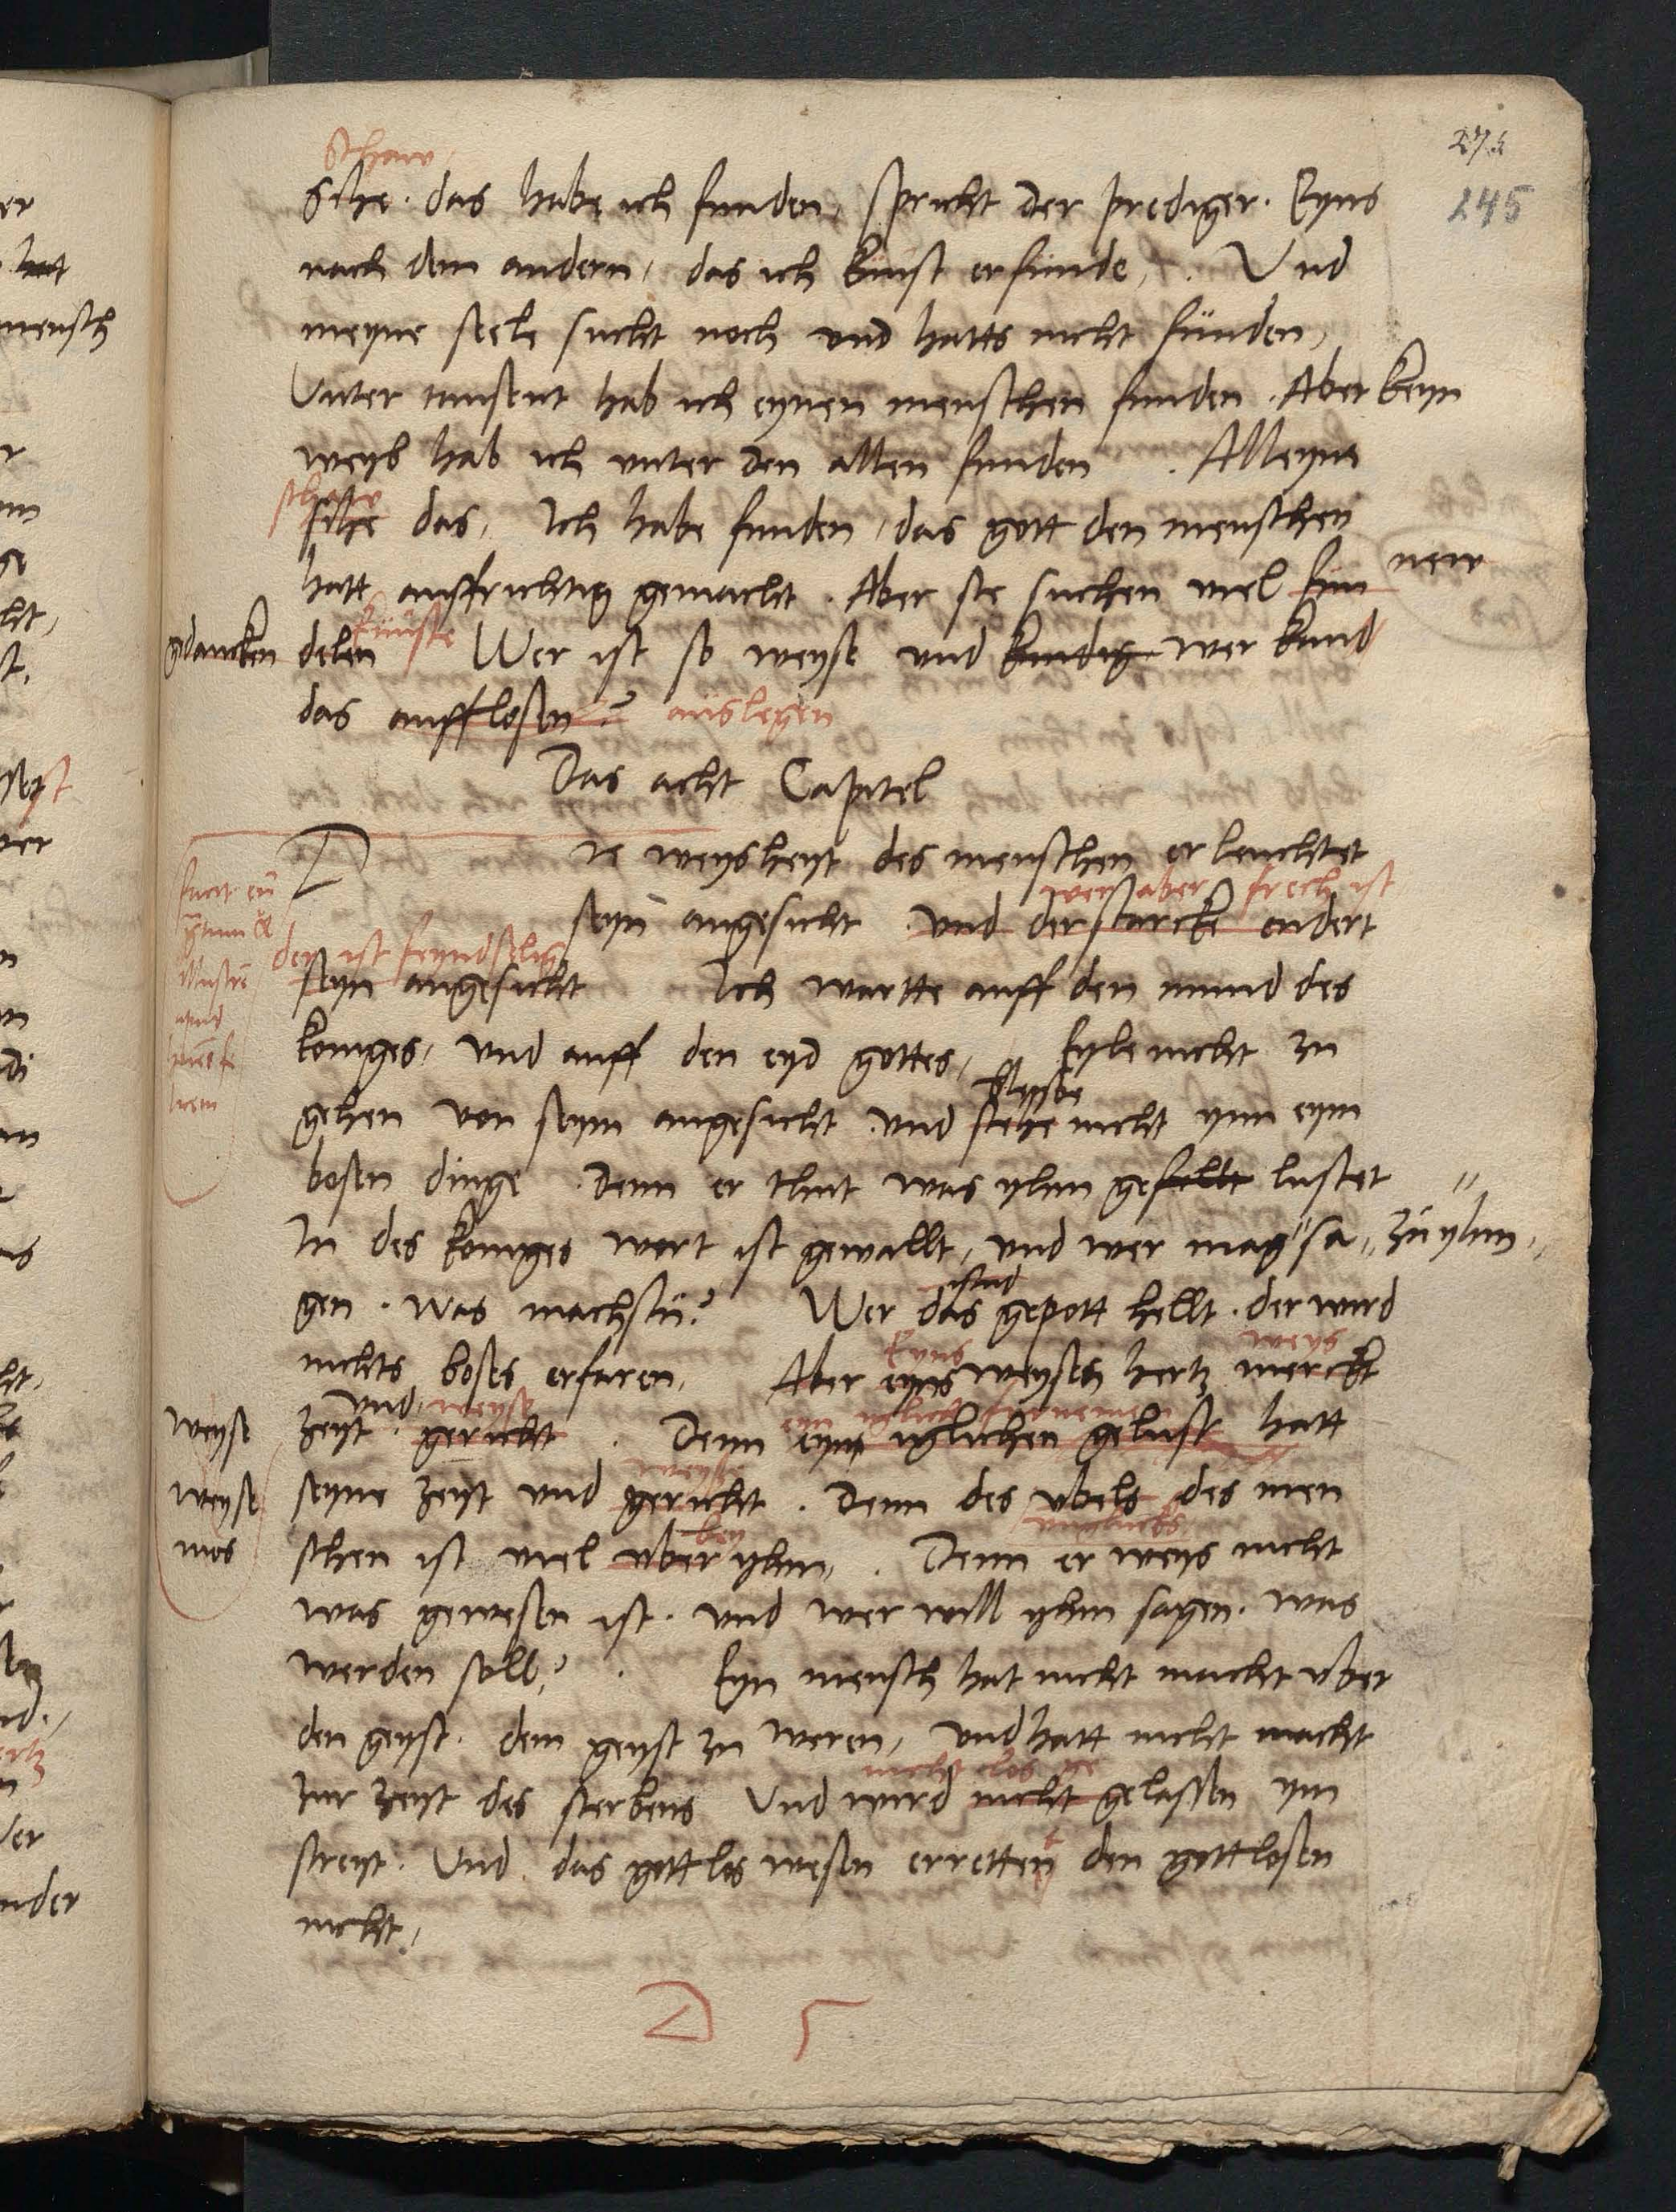 273
245
Schaw
Sihe. das habe ich funden, spricht der prediger. Eyns
nach dem andern, das ich kunst erfunde, . Vnd
meyne seele sucht noch vnd hatts nicht funden,
Vnter tausent hab ich eynen menschen funden. Aber keyn
weyb hab ich vnter den allen funden . Alleyne
schaw
sihe das, Ich habe funden, das gott den menschen
hatt auffrichtig gemacht. Aber sie suchen viel fun new
kunste
gedancken delen Wer ist so weyse vnd kundig wer kund
das aufflosen? auslegen
Das acht Capitel
D ie weysheyt des menschen erleuchtet
wer aber frech ist
seyn angesicht. vnd der starcke endert
der ist feyndselig
seyn angesicht Ich wartte auff den mund des
koniges, vnd auff den eyd gottes, Eyle nicht zu
bleybe
gehen von seym angesicht vnd stehe nicht ynn eym
bosen dinge. Denn er thut was yhm gefellt lustet
In des koniges wort ist gewallt, vnd wer mag sa zu yhm
gen. was machstu? Wer das gepott hellt. der wird
Eyns weys
nichts boses erfaren, Aber eyns weysen hertz merckt
vnd weyse
weyse zeyt. gericht. Denn eym iglichen gelust hatt
weyse seyne zeyt vnd gericht. Denn des vbels des men
bey
mos schen ist viel vber yhm, . Denn er weys nicht
was gewesen ist. vnd wer will yhm sagen. was
werden soll? . Eyn mensch hat nicht macht vber
den geyst. dem geyst zu weren, vnd hatt nicht macht
nicht los
zur zeyt des sterbens Vnd wird nicht gelassen ym
streyt. Vnd. das gottlos wesen erretten den gottlosen
nicht,